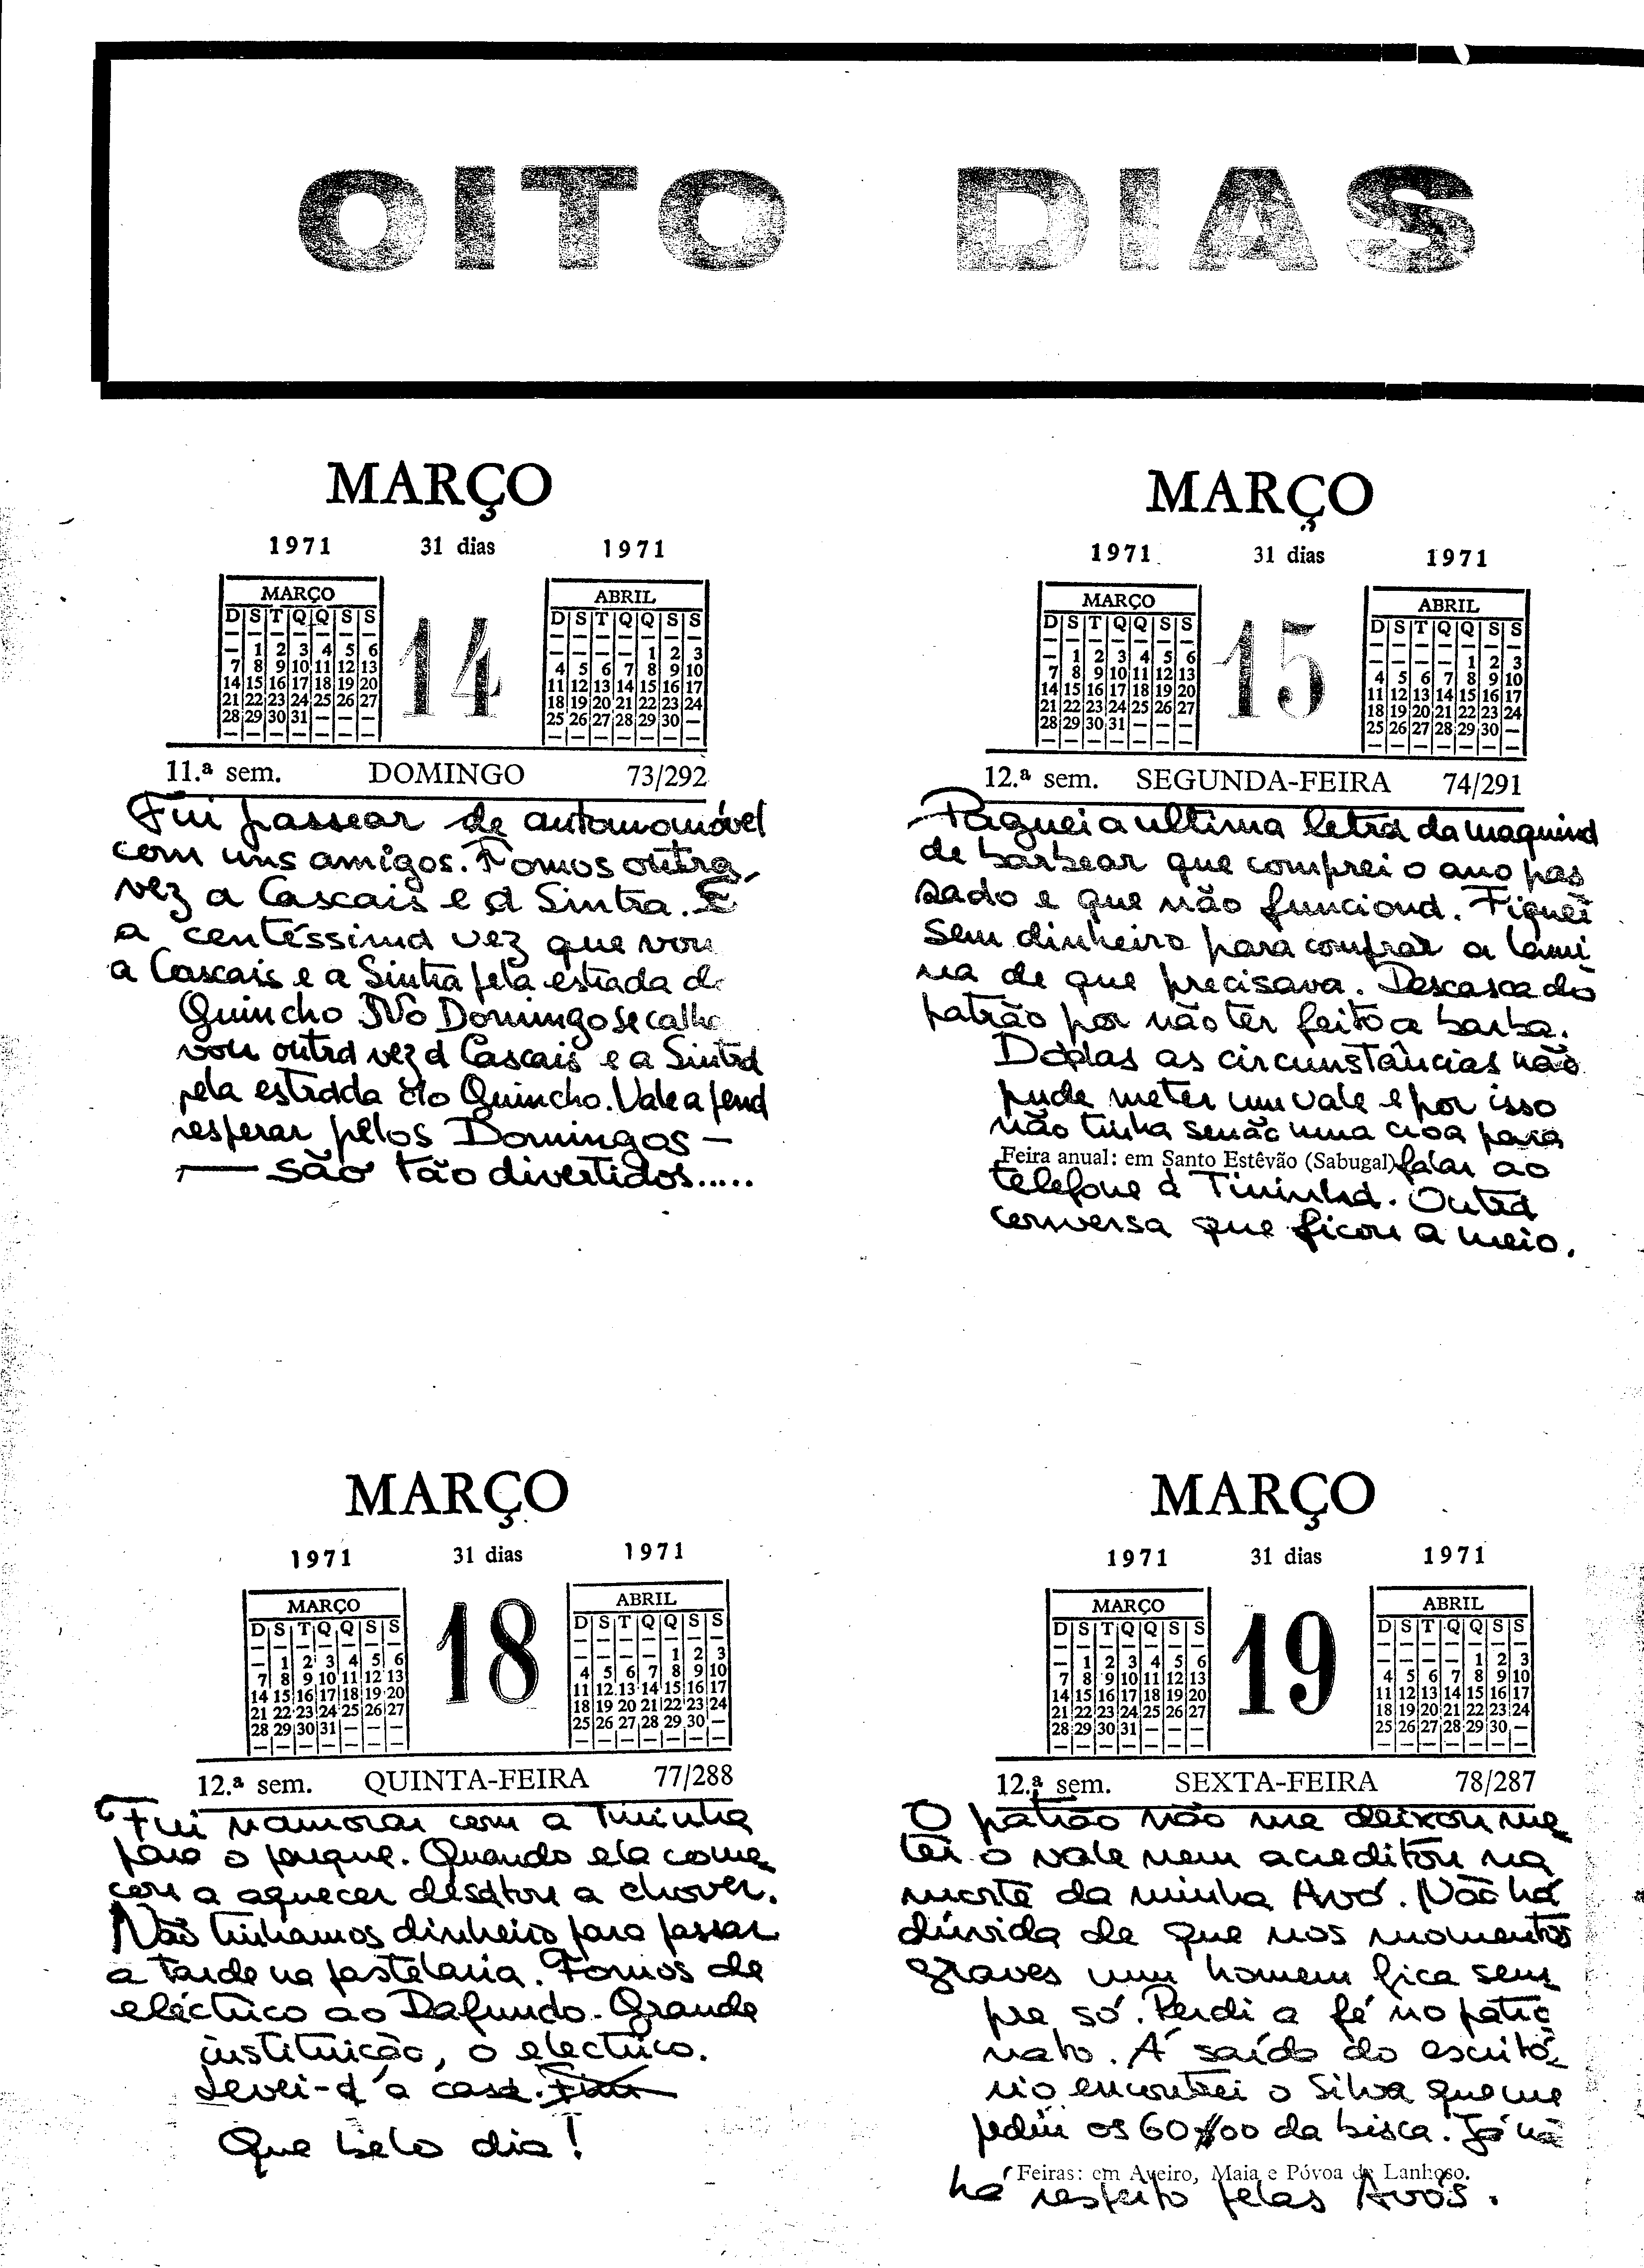 OITO DIAS
MARÇO
1971 31 dias 1971
MARÇO
D S T Q Q S S
– 1 2 3 4 5 6
7 8 9 10 11 12 13
14 15 16 17 18 19 20
21 22 23 24 25 26 27
28 29 30 31 – – –
14
ABRIL
D S T Q Q S S
– – – – 1 2 3
4 5 6 7 8 9 10
11 12 13 14 15 16 17
18 19 20 21 22 23 24
25 26 27 28 29 30 –
11.ª sem. DOMINGO 73/292
Fui passear de automomóvel
com uns amigos. Fomos outra
vez a Cascais e a Sintra. É
a centéssima vez que vou
a Cascais e a Sintra pela estrada do
Quincho. No Domingo se calha
vou outra vez a Cascais e a Sintra
pela estrada do Quincho. Vale a pena
esperar pelos Domingos –
— são tão divertidos.....
MARÇO
1971 31 dias 1971
MARÇO
D S T Q Q S S
– 1 2 3 4 5 6
7 8 9 10 11 12 13
14 15 16 17 18 19 20
21 22 23 24 25 26 27
28 29 30 31 – – –
15
ABRIL
D S T Q Q S S
– – – – 1 2 3
4 5 6 7 8 9 10
11 12 13 14 15 16 17
18 19 20 21 22 23 24
25 26 27 28 29 30 –
12.ª sem. SEGUNDA-FEIRA 74/291
Paguei a ultima letra da maquina
de barbear que comprei o ano pas
sado e que não funciona. Fiquei
sem dinheiro para comprar a lami
na de que precisava. Descasca do
patrão por não ter feito a barba.
Dadas as circunstâncias não
pude meter um vale e por isso
não tinha senão uma croa para
Feira anual: em Santo Estêvão (Sabugal) falar ao
telefone à Tininha. Outra
conversa que ficou a meio.
MARÇO
1971 31 dias 1971
MARÇO
D S T Q Q S S
– 1 2 3 4 5 6
7 8 9 10 11 12 13
14 15 16 17 18 19 20
21 22 23 24 25 26 27
28 29 30 31 – – –
18
ABRIL
D S T Q Q S S
– – – – 1 2 3
4 5 6 7 8 9 10
11 12 13 14 15 16 17
18 19 20 21 22 23 24
25 26 27 28 29 30 –
12.ª sem. QUINTA-FEIRA 77/288
Fui namorar com a Tininha
para o parque. Quando ela come
çou a aquecer desatou a chover.
Não tinhamos dinheiro para passar
a tarde na pastelaria. Fomos de
eléctrico ao Dafundo. Grande
instituicão, o electrico.
Levei-a a casa.
Que belo dia!
MARÇO
1971 31 dias 1971
MARÇO
D S T Q Q S S
– 1 2 3 4 5 6
7 8 9 10 11 12 13
14 15 16 17 18 19 20
21 22 23 24 25 26 27
28 29 30 31 – – –
19
ABRIL
D S T Q Q S S
– – – – 1 2 3
4 5 6 7 8 9 10
11 12 13 14 15 16 17
18 19 20 21 22 23 24
25 26 27 28 29 30 –
12.ª sem. SEXTA-FEIRA 78/287
O patrão não me deixou me
ter o vale nem acreditou na
morte da minha Avó. Não há
dúvida de que nos momentos
graves um homem fica sem
pre só. Perdi a fé no patro
nato. Á saída do escritó
rio encontrei o Silva que me
pediu os 60$00 da bisca. Já nã
Feiras: em Aveiro, Maia e Póvoa de Lanhoso.
há respeito pelas Avós.